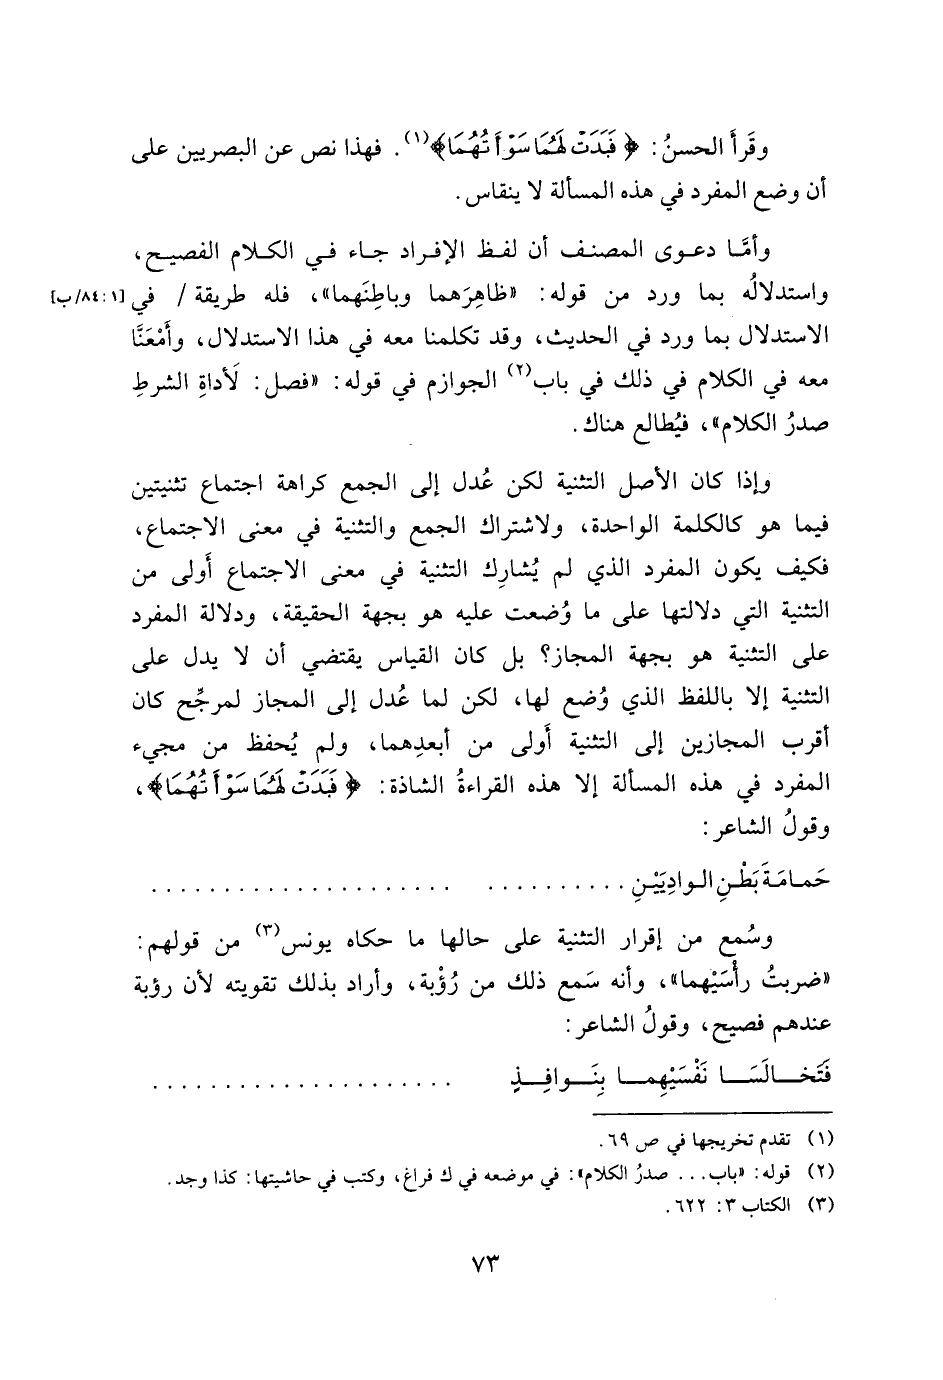 وقَرأَ الحسنُ: ﴿ فَبَدَتْ لَهُمَا سَوْأَتُهُمَا﴾(١). فهذا نص عن البصريين على
أن وضع المفرد في هذه المسألة لا ينقاس.
وأمَّا دعوى المصنف أن لفظ الإفراد جاء في الكلام الفصيح،
واستدلالُه بما ورد من قوله: «ظاهِرَهما وباطِنَهما»، فله طريقة / في [١: ٨٤/ب]
الاستدلال بما ورد في الحديث، وقد تكلمنا معه في هذا الاستدلال، وأَمْعَنَّا
معه في الكلام في ذلك في باب(٢) الجوازم في قوله: «فصل: لَأداةِ الشرطِ
صدرُ الكلام»، فيُطالع هناك.
وإذا كان الأصل التثنية لكن عُدل إلى الجمع كراهة اجتماع تثنيتين
فيما هو كالكلمة الواحدة، ولاشتراك الجمع والتثنية في معنى الاجتماع،
فكيف يكون المفرد الذي لم يُشارِك التثنية في معنى الاجتماع أَولى من
التثنية التي دلالتها على ما وُضعت عليه هو بجهة الحقيقة، ودلالة المفرد
على التثنية هو بجهة المجاز؟ بل كان القياس يقتضي أن لا يدل على
التثنية إلا باللفظ الذي وُضع لها، لكن لما عُدل إلى المجاز لمرجِّح كان
أقرب المجازين إلى التثنية أَولى من أبعدِهما، ولم يُحفظ من مجيء
المفرد في هذه المسألة إلا هذه القراءةُ الشاذة: ﴿ فَبَدَتْ لَهُمَا سَوْأَتُهُمَا﴾،
وقولُ الشاعر:
حَمامَةَ بَطْنِ الوادِيَيْنِ .......... ......................
وسُمع من إقرار التثنية على حالها ما حكاه يونس(٣) من قولهم:
«ضربتُ رأْسَيْهما»، وأنه سَمع ذلك من رُؤْبة، وأراد بذلك تقويته لأن رؤبة
عندهم فصيح، وقولُ الشاعر:
فَتَخالَسَا نَفْسَيْهِما بِنَوافِذٍ ......................
(١) تقدم تخريجها في ص ٦٩.
(٢) قوله: «باب... صدرُ الكلام»: في موضعه في ك فراغ، وكتب في حاشيتها: كذا وجد.
(٣) الكتاب ٣: ٦٢٢.
٧٣